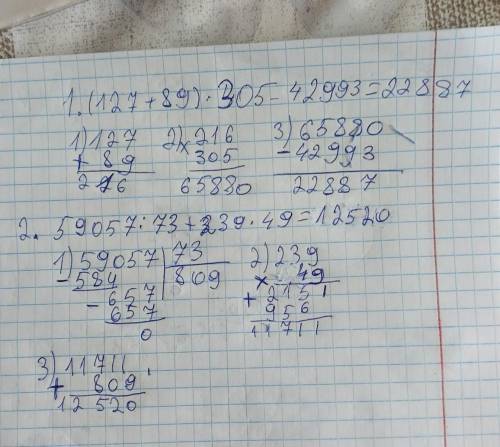 1. (127 + 89) · 305 - 42993 = 22887
1) 127
+ 89
216
2) 216
× 305
65880
3) 65880
- 42993
22887
2. 59057 : 73 + 239 · 49 = 12520
1) 59057 | 73
- 584 | 809
- 657
657
0
2) 239
× 49
+ 2151
956
11711
3) 11711
+ 809
12520